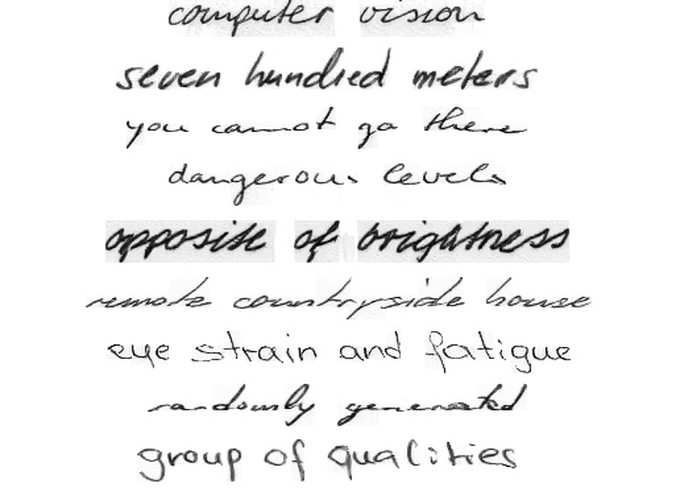 computer vision
seven hundred meters
you cannot go there
dangerous levels
opposite of brightness
remote countryside house
eye strain and fatigue
randomly generated
group of qualities